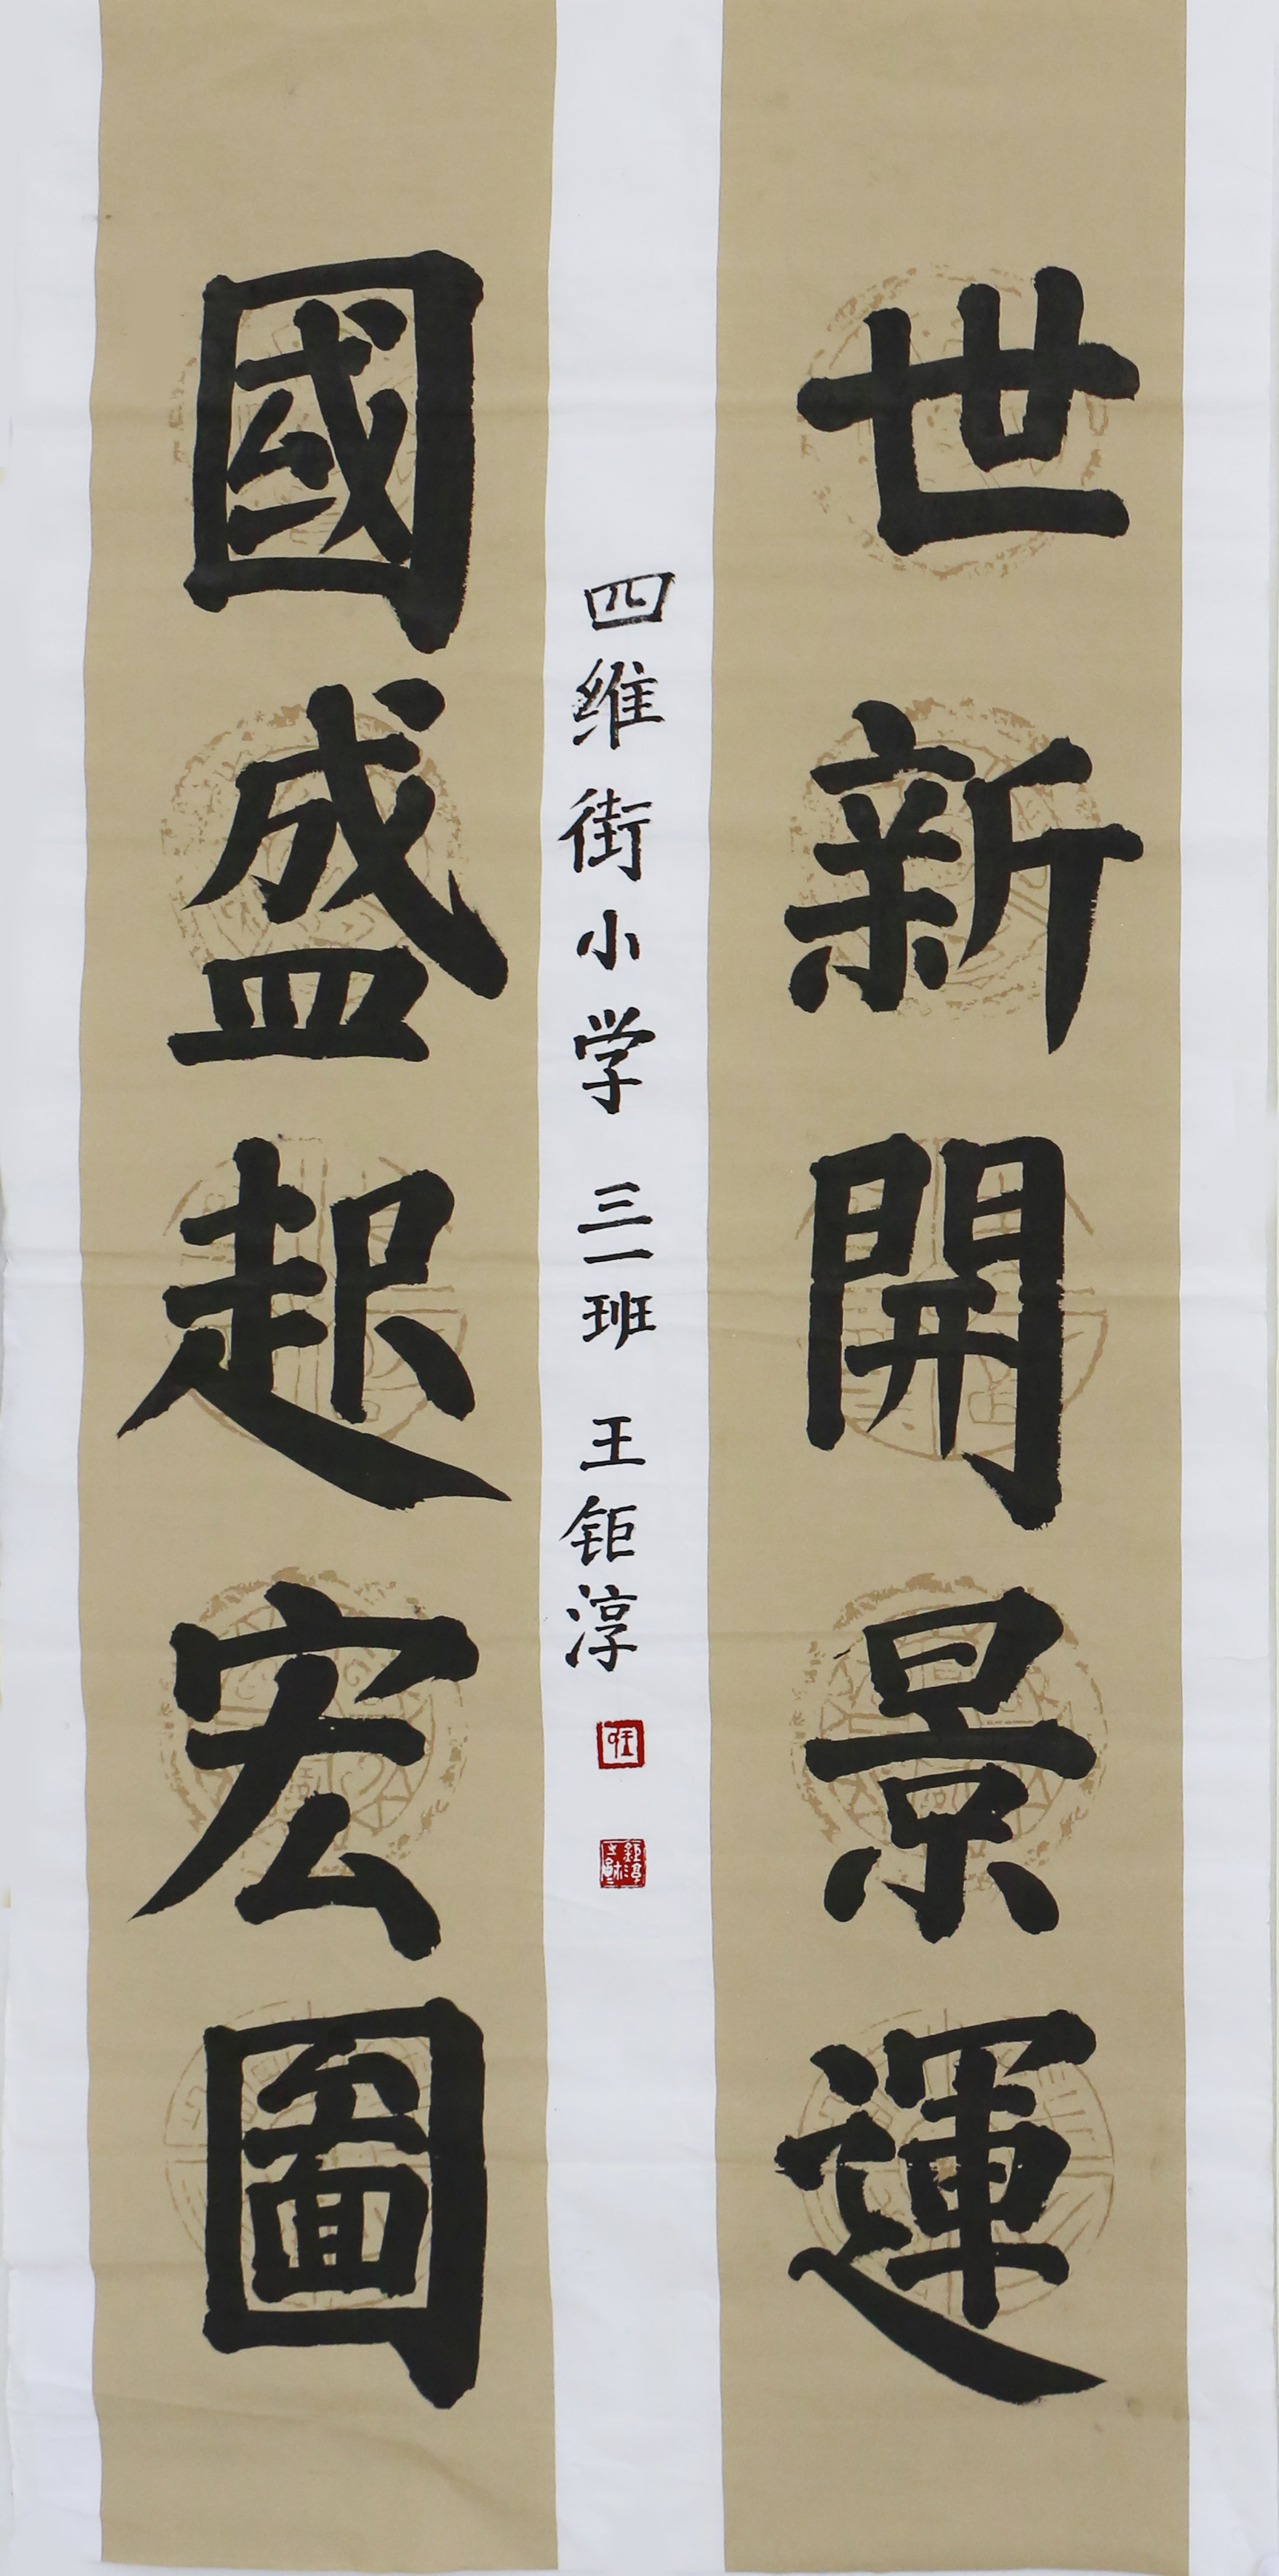 世新開景運
四维街小学 三一班 王钜淳
國盛起宏圖